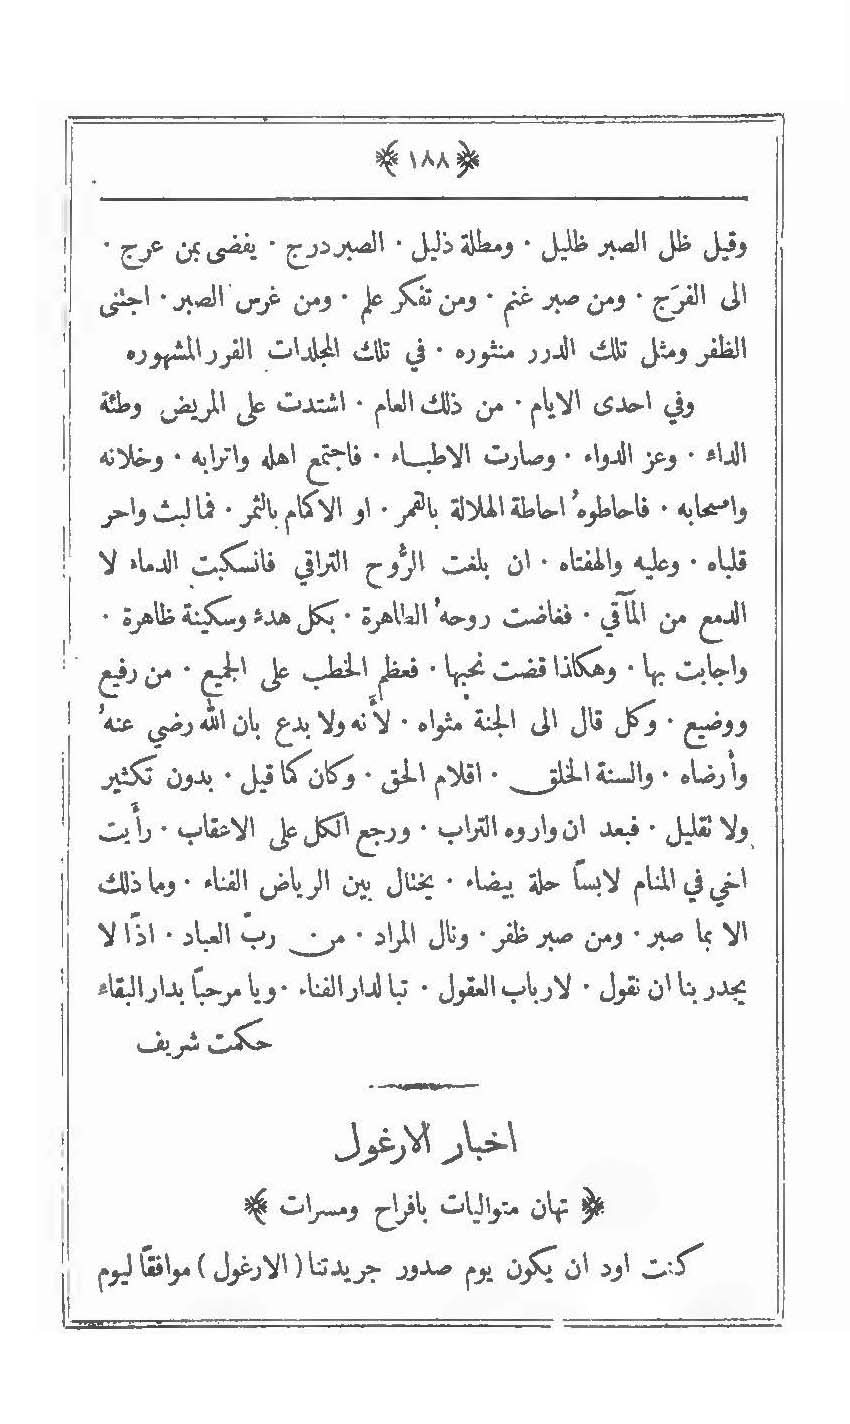 ﴿ ١٨٨ ﴾
وقيل ظل الصبر ظليل · ومطلة ذليل · الصبر درج · يفضى بمن عرج ·
الى الفرَج · ومن صبر غنم · ومن تفكر علم · ومن غرس الصبر · اجتنى
الظفر ومثل تلك الدرر منثوره · في تلك المجلدات الغرر المشهوره
وفي احدى الايام · من ذلك العام · اشتدت على المريض وطئة
الداء · وعز الدواء · وصارت الاطباء · فاجتمع اهله واترابه · وخلانه
واصحابه · فاحاطوهُ احاطة الهلالة بالقمر · او الاكمام بالثمر · فما لبث واحر
قلباه · وعليه والهفتاه · ان بلغت الرُّوح التراقي فانسكبت الدماء لا
الدمع من المآقي · ففاضت روحهُ الطاهرة · بكل هدء وسكينة ظاهرة ·
واجابت بها · وهكاذا قضت نحبها · فعظم الخطب على الجميع · من رفيع
ووضيع · وكل قال الى الجنة مثواه · لأنه ولا بدع بان الله رضي عنهُ
وأرضاه · والسنة الخلق · اقلام الحق · وكان كما قيل · بدون تكثير
ولا تقليل · فبعد ان واروه التراب · ورجع الكل على الاعقاب · رأيت
اخي في المنام لابسًا حلة بيضاء · يختال بين الرياض الفناء · وما ذلك
الا بما صبر · ومن صبر ظفر · ونال المراد · من ربّ العباد · اذًا لا
يجدر بنا ان نقول · لارباب العقول · تبا لدار الفناء · ويا مرحبًا بدار البقاء
حكمت شريف
اخبار الارغول
﴿ تهان متواليات بافراح ومسرات ﴾
كنت اود ان يكون يوم صدور جريدتنا ( الارغول ) موافقًا ليوم